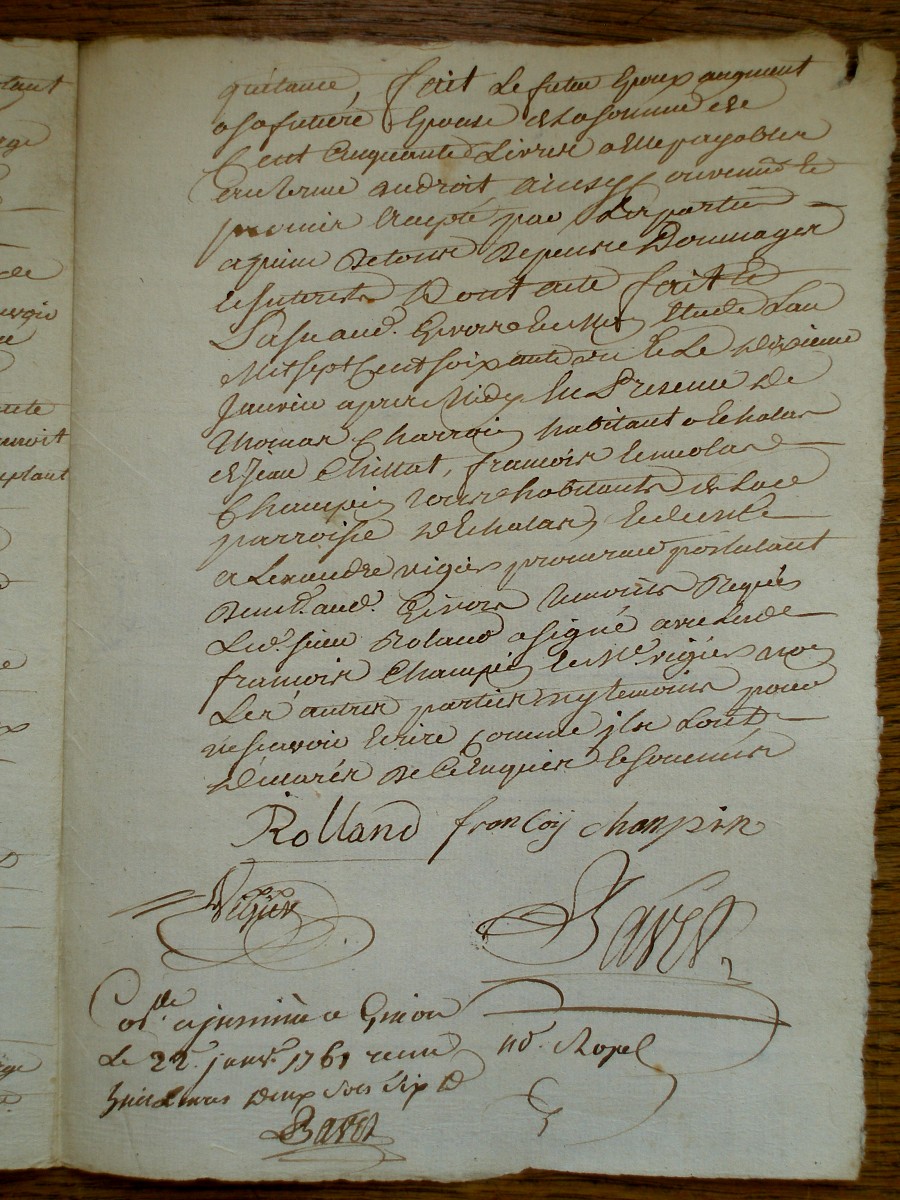 quittance, fait Le futeu Epoux augment
a sa future Epouse de La somme de
Cent Cinquante Livres a Elle payables
En terme audroit ainsy Convenu Le
promis Accepté par Les parties
a peine De tous Depens Dommages
Et Interets Dont acte fait
aud. Givors Etude Lan
Mil sept Cent soixante un Et Le Dixieme
Janvier apres Midy En Presence De
Thomas Charroin habitant a Echalas
Et Jean Chillat, francois Et nicolas
Champin Tous habitants de Lad
parroisse D'Echalas Et de me
alexandre vigier procureur postulant
aud. Givors Temoins Requis
Led. sieur Roland a signé avec Led.
francois Champin Et Me vigier non
Les autres parties ny temoins pour
ne scavoir Ecrire Comme ils Sont
De Ce Enquis Et Sommés
Rolland francoy champin
Vigier
Bavet
a Givors
Le 22e. janvr. 1761 recu
Livres deux sols six D
Bavet